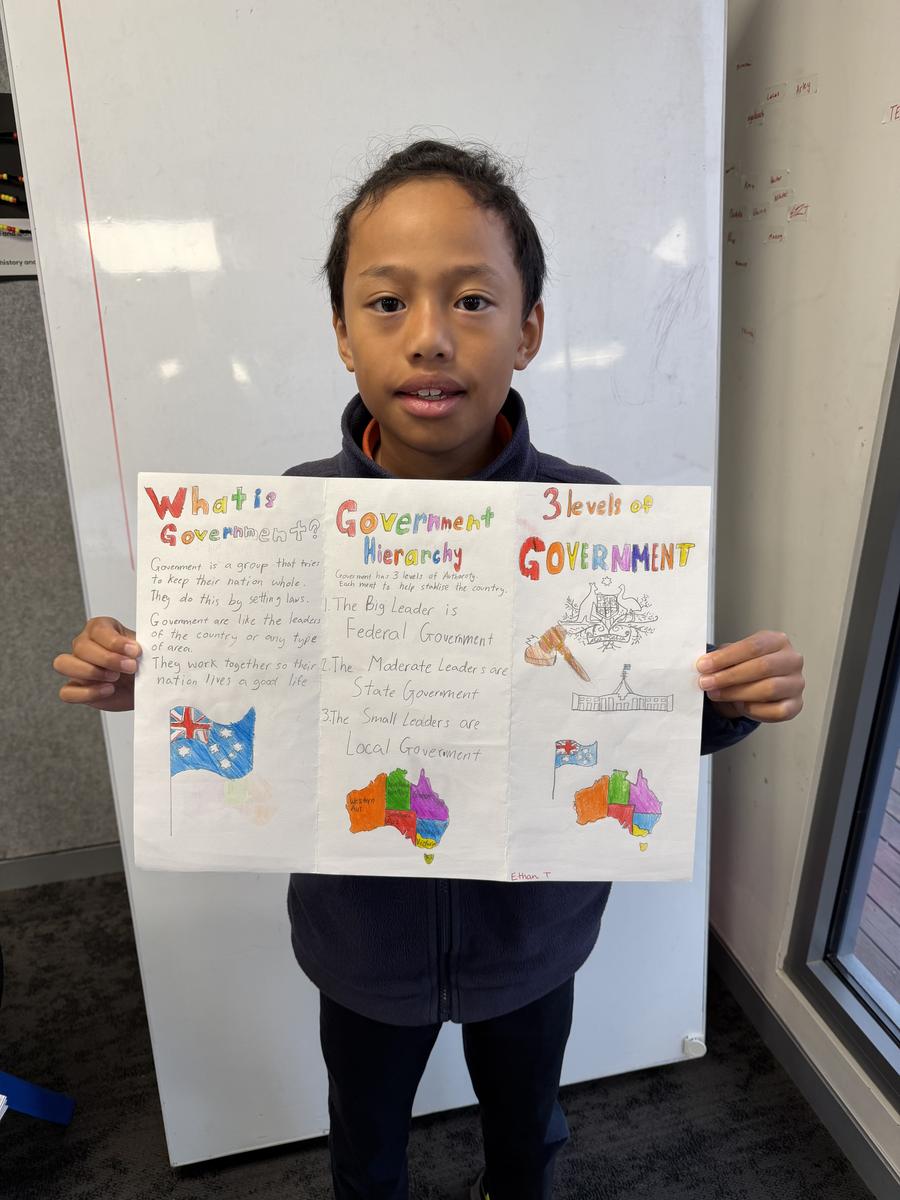 What is
Government?
Government is a group that tries
to keep their nation whole.
They do this by setting laws.
Government are like the leaders
of the country or any type
of area.
They work together so their
nation lives a good life
Government
Hierarchy
Government has 3 levels of Authority.
Each ment to help stablise the country.
1. The Big Leader is
Federal Government
2. The Moderate Leaders are
State Government
3. The Small Leaders are
Local Government
Western
Aus.
Victoria
3 levels of
GOVERNMENT
Ethan T
history and
Lucas
Arley
TE